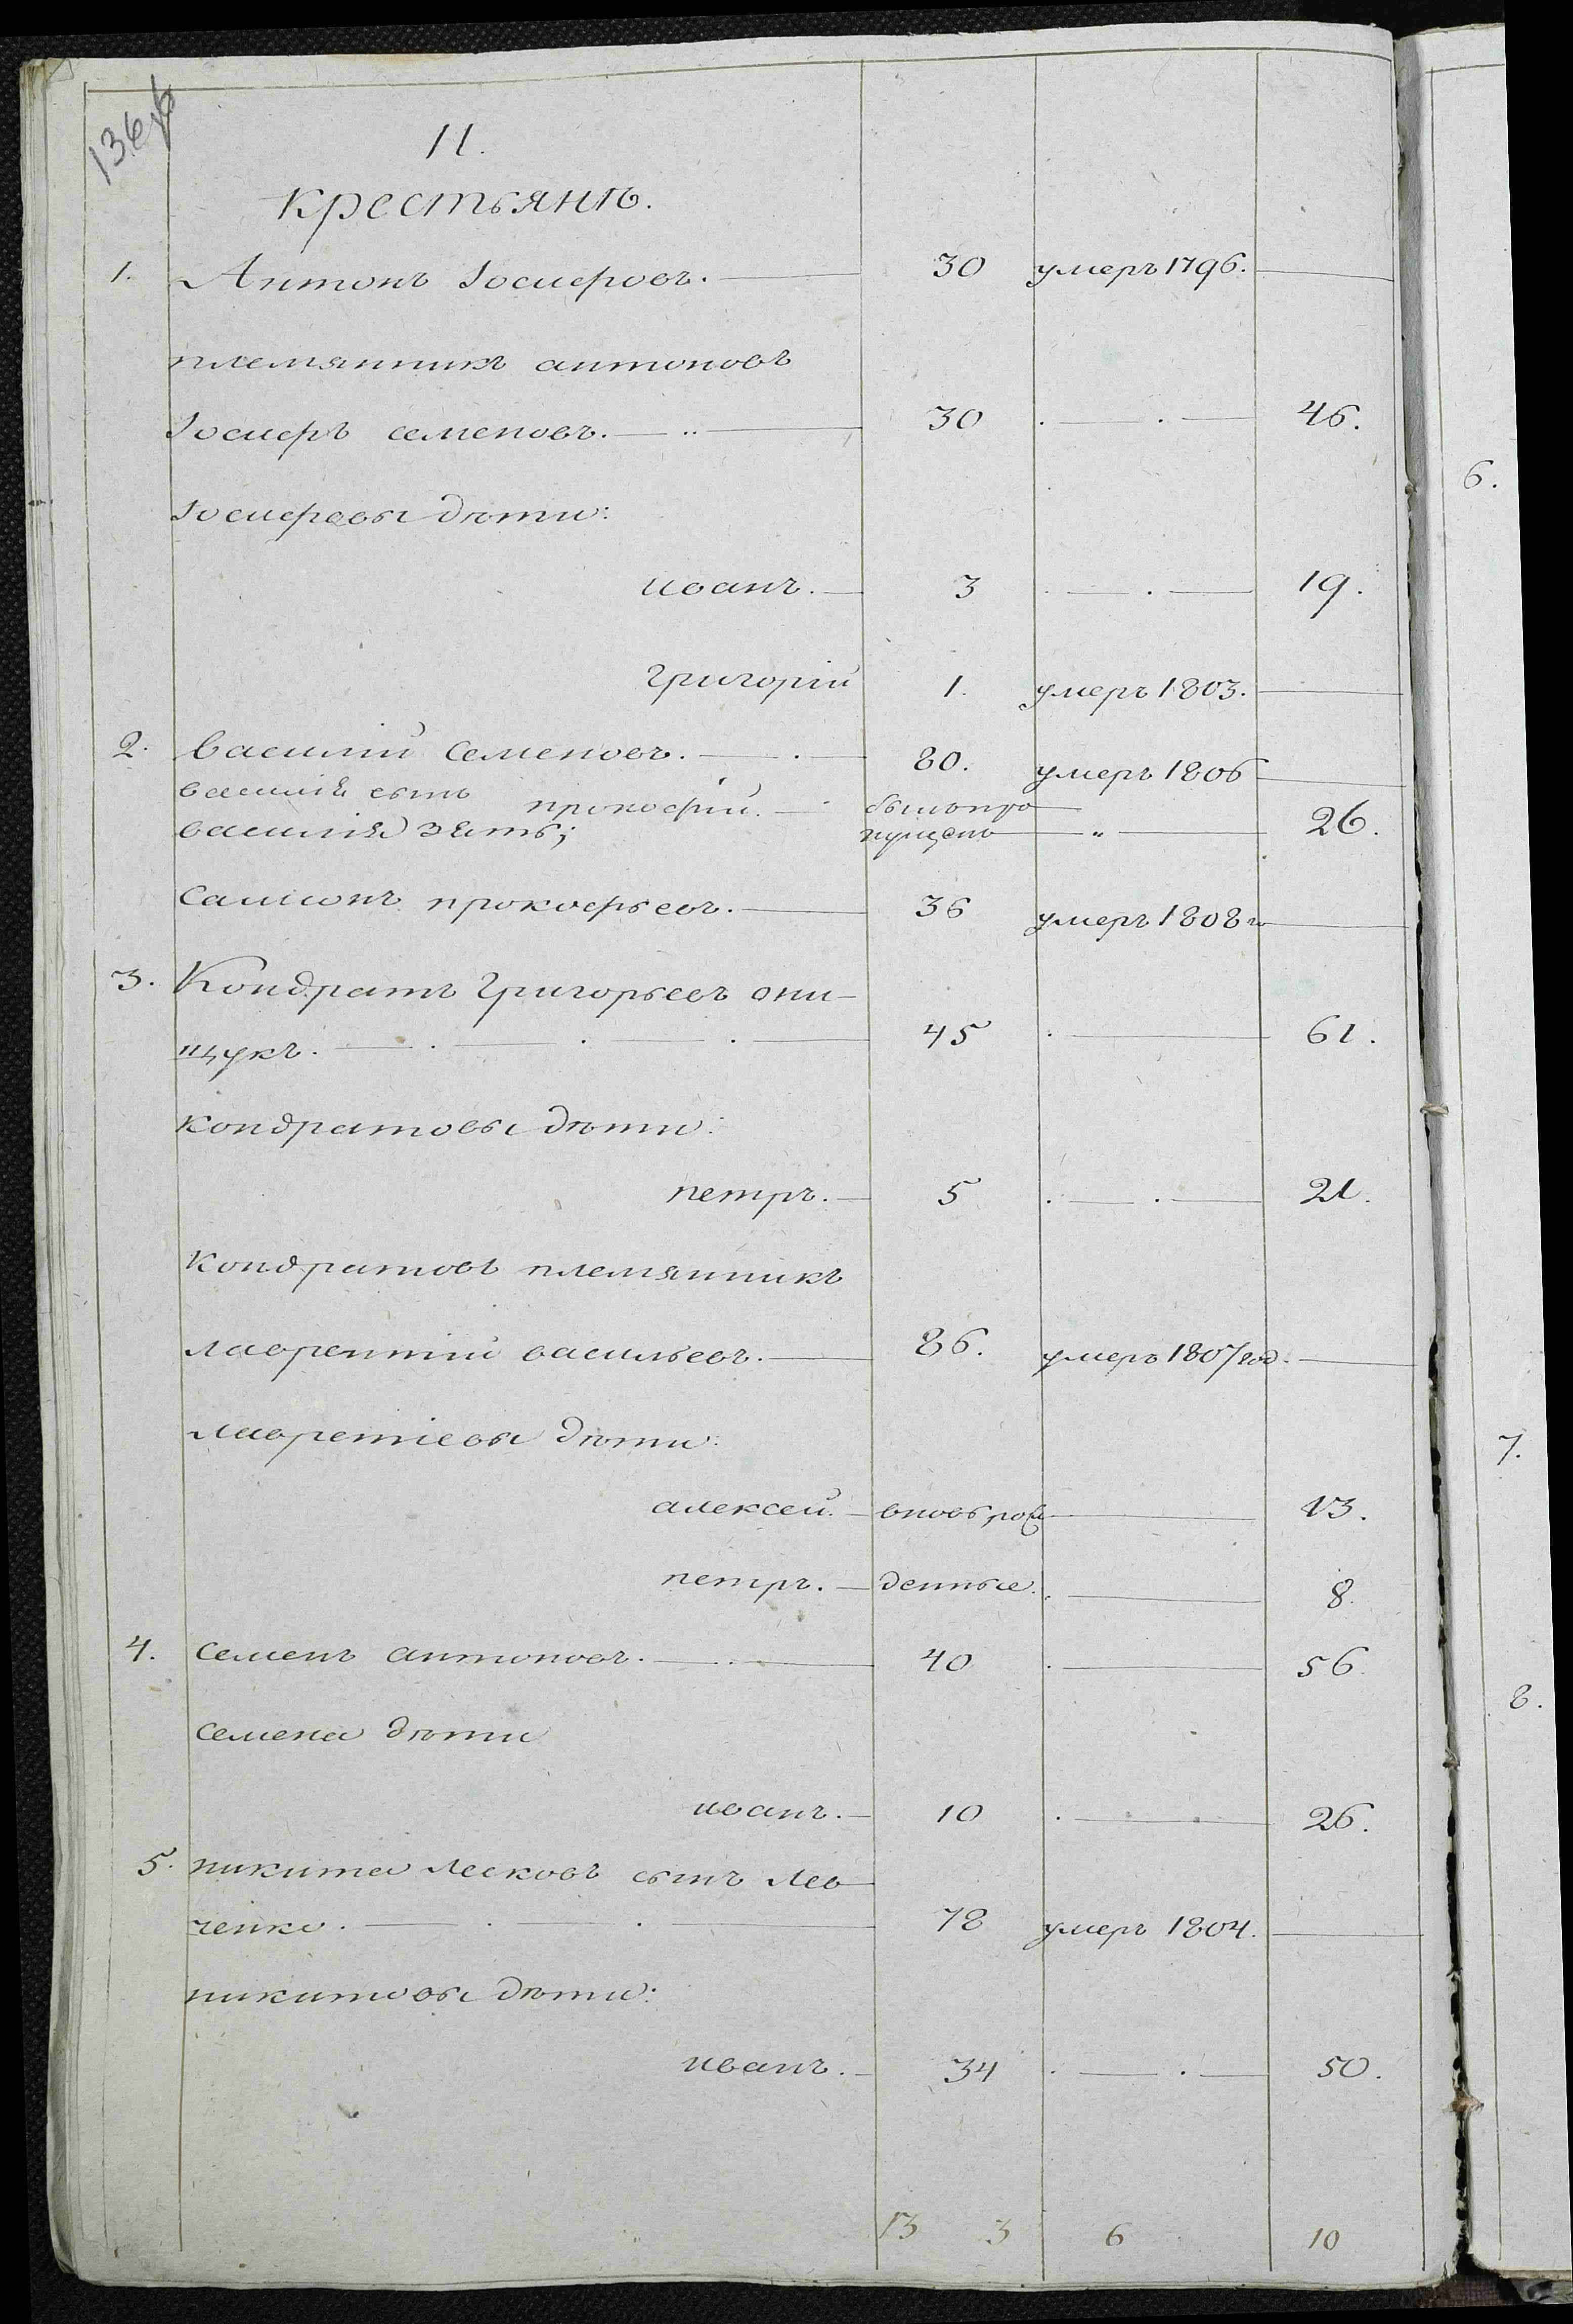 136
II.
крестьянъ.
1. Антонъ Iосиеровъ. 30 умеръ 1796.
племянникъ антоновъ
Iосиеръ семеновъ. 30 46.
Iосиеровы дѣти:
иванъ. 3 19.
григорiй 1. умеръ 1803.
2. василiй семеновъ. 80. умеръ 1806
василiя сынъ прокофiй. былъ про
василiя зять; пущенъ 26.
самсонъ прокофьевъ. 36 умеръ 1808го
3. Кондратъ Григорьевъ они-
щукъ. 45 61.
кондратовы дѣти:
петръ. 5 21.
кондратовъ племянникъ
лаврентiй васильевъ. 86. умеръ 1807 год.
лавретiевы дѣти:
алексей. вновь рож 13.
петръ. денные. 8.
4. семенъ антоновъ. 40 56.
семена дѣти
иванъ. 10 26.
5. никита лесковъ сынъ лев
ченко. 78 умеръ 1804.
никитовы дѣти:
иванъ. 34 50.
13 3 6 10
6.
7.
8.